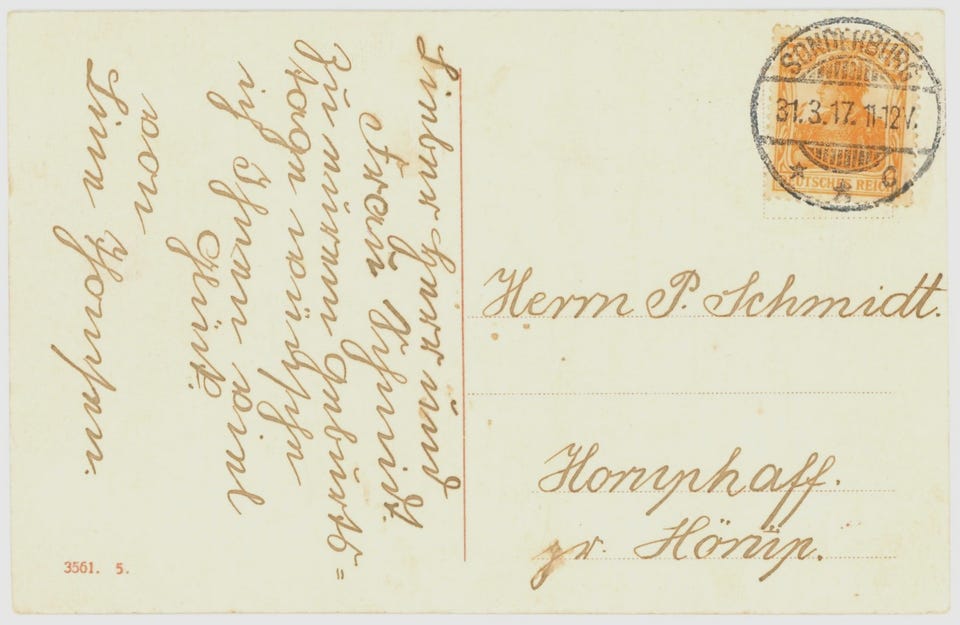 SONDERBURG
31.3.17. 11-12V.
* * C
DEUTSCHES REICH
Lieber Herr und
Frau Schmidt.
Zu euren Geburts=
tagen wünsche
ich Ihnen viel
Glück.
von
Line Hansen.
Herrn P. Schmidt.
Horuphaff.
pr. Hörup.
3561. 5.